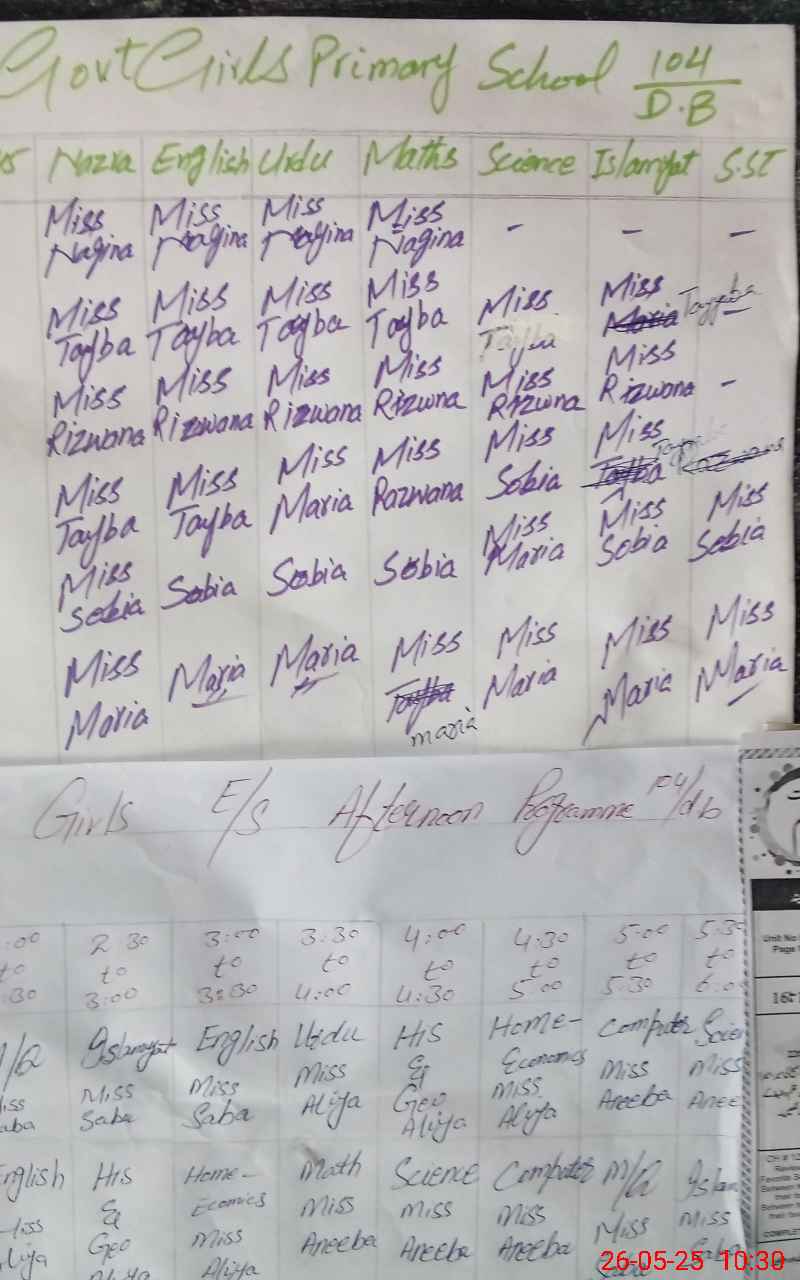 Govt Girls Primary School 104/D.B
Nazra English Urdu Maths Science Islamyat S.ST
Miss Miss Miss Miss - - -
Nagina Nagina Nagina Nagina
Miss Miss Miss Miss Miss Miss -
Tayba Tayba Tayba Tayba Tayba Maria Tayyaba
Miss Miss Miss Miss Miss Miss -
Rizwana Rizwana Rizwana Rizwna Rizwna Rizwana
Miss Miss Miss Miss Miss Miss
Tayba Tayba Maria Razwana Sobia Tayba
Miss Miss Miss Miss
Sobia Sobia Sobia Sobia Maria Sobia Sobia
Miss Miss Miss Miss Miss
Maria Maria Maria Tayba Maria Maria Maria
maria
Girls E/S Afternoon Programme 104/db
:00 2 30 3:00 3:30 4:00 4:30 5:00 5:30
to to to to to to to to
:30 3:00 3:30 4:00 4:30 5:00 5:30 6:0
/Q Islamyat English Urdu His Home- Computer Scien
iss Miss Miss Miss & Economics Miss Miss
aba Saba Saba Aliya Geo Miss Areeba Aree
Aliya Aliya
nglish His Home- Math Science Computer M/Q Islam
Miss & Ecomics Miss Miss Miss Miss Miss
liya Geo Miss Areeba Areeba Areeba Saba Saba
Aliya Aliya
Unit No
Page
16
CH # 1
Review
Favorite S
Between
their f
Between
their fa
COMPLET
26-05-25 10:30